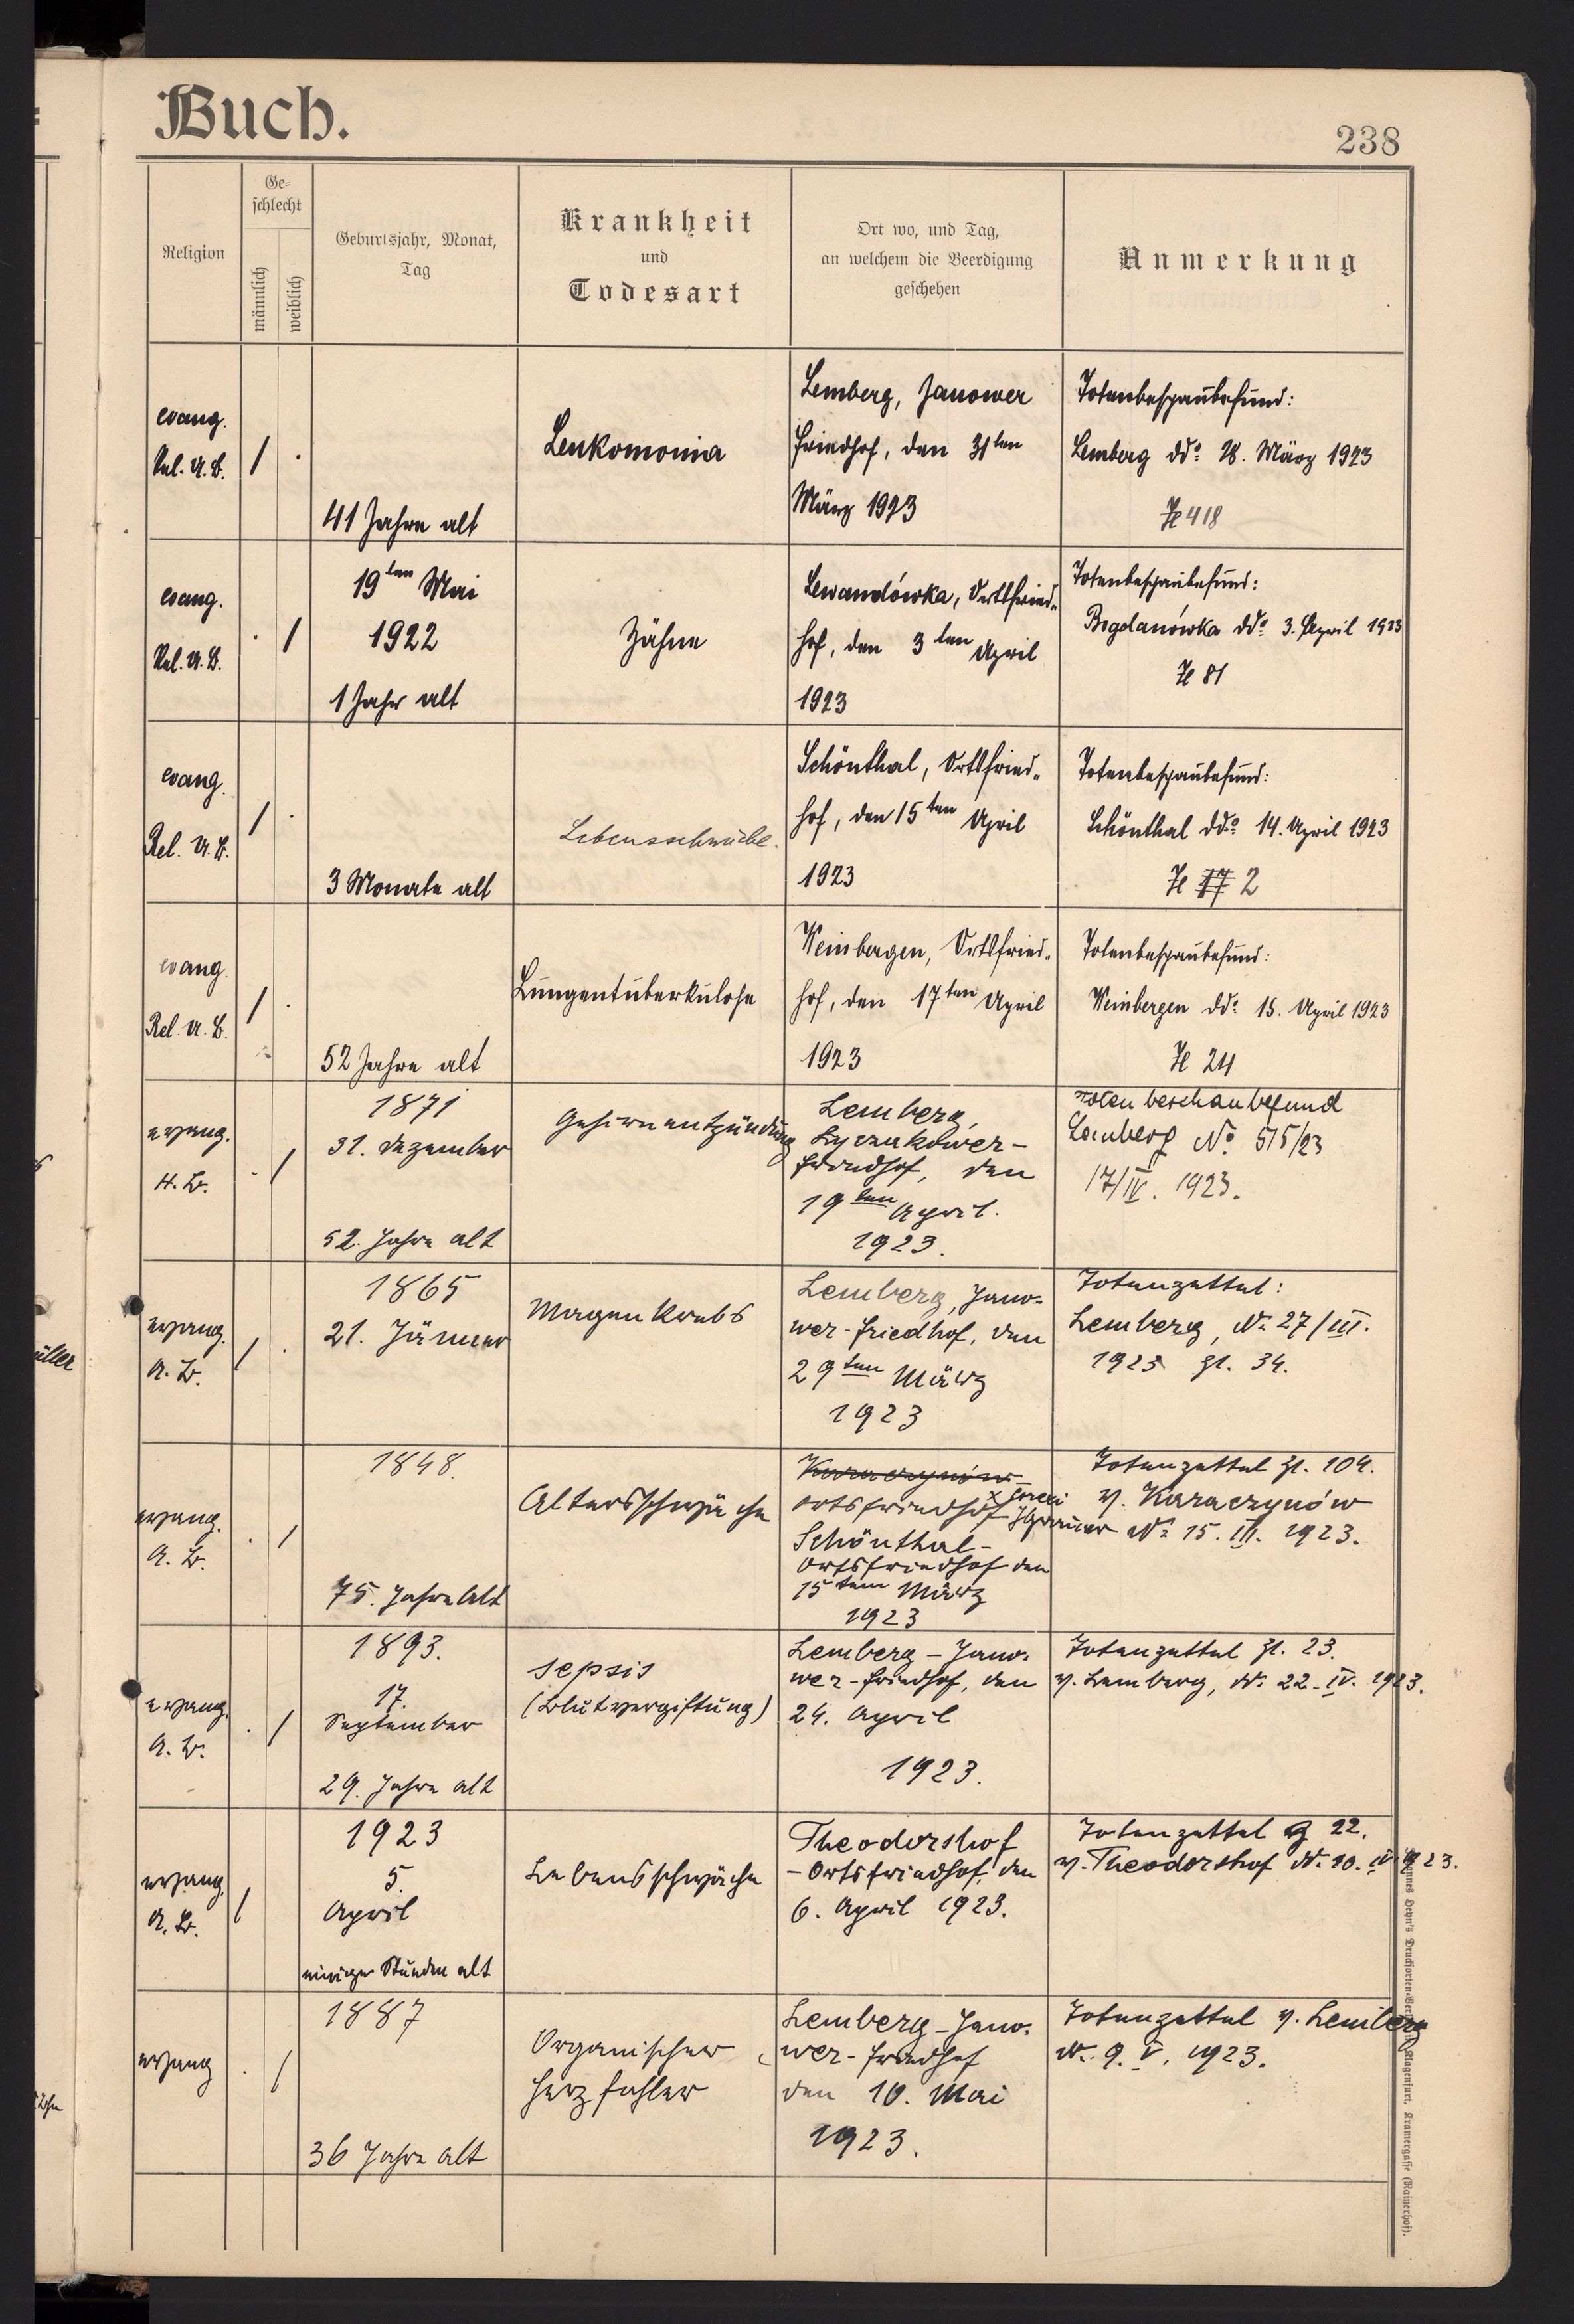 Buch.
238
Religion
Ge-
schlecht
männlich
weiblich
Geburtsjahr, Monat,
Tag
Krankheit
und
Todesart
Ort wo, und Tag,
an welchem die Beerdigung
geschehen
Anmerkung
evang.
Rel. A. B.
/ .
41 Jahre alt
Leukomonia
Lemberg, Janower
Friedhof, den 31ten
März 1923
Totenbeschaubefund:
Lemberg ddo: 28. März 1923
Zl 418
evang.
Rel. A. B.
. /
19ten Mai
1922
1 Jahr alt
Zähne
Lewandówka, Ortsfried„
hof, den 3ten April
1923
Totenbeschaubefund:
Bogdanówka ddo: 3. April 1923
Zl 81
evang.
Rel. A. B.
/ .
3 Monate alt
Lebensschwäche.
Schönthal, Ortsfried„
hof, den 15ten April
1923
Totenbeschaubefund:
Schönthal ddo: 14. April 1923
Zl 17 2
evang.
Rel. A. B.
/ .
52 Jahre alt
Lungentuberkulose
Weinbergen, Ortsfried„
hof, den 17ten April
1923
Totenbeschaubefund:
Weinbergen ddo: 15. April 1923
Zl 24
evang.
H. B.
. /
1871
31. Dezember
52. Jahre alt
Gehirnentzündung
Lemberg,
Lyczakower-
friedhof, den
19ten April.
1923.
Totenbeschaubefund
Lemberg No 515/23
17/IV. 1923.
evang.
A. B.
/ .
1865
21. Jänner
Magenkrebs
Lemberg, Jano-
wer-Friedhof, den
29ten März
1923
Totenzettel:
Lemberg, d. 27/III.
1923 Zl. 34.
evang.
A. B.
. /
1848.
75. Jahre alt
Altersschwäche
Karaczynów-
Ortsfriedhof
Schönthal-
Ortsfriedhof den
15tem März
1923
Totenzettel Zl. 104.
v. Karaczynów
d. 15. III. 1923.
evang.
A. B.
. /
1893.
17.
September
29. Jahre alt
Sepsis
(Blutvergiftung)
Lemberg - Jano-
wer-Friedhof, den
24. April
1923.
Totenzettel Zl. 23.
v. Lemberg, d. 22. IV. 1923.
evang.
A. B.
/
1923
5.
April
einiger Stunden alt
Lebensschwäche
Theodorshof
- Ortsfriedhof, den
6. April 1923.
Totenzettel 22.
v. Theodorshof d. 10. IV. 1923.
evang
. /
1887
36 Jahre alt
Organischer
Herzfehler
Lemberg - Jano-
wer-Friedhof
den 10. Mai
1923.
Totenzettel v. Lemberg
d. 9. V. 1923.
üller
Klagenfurt, Kramergasse (Rainerhof).